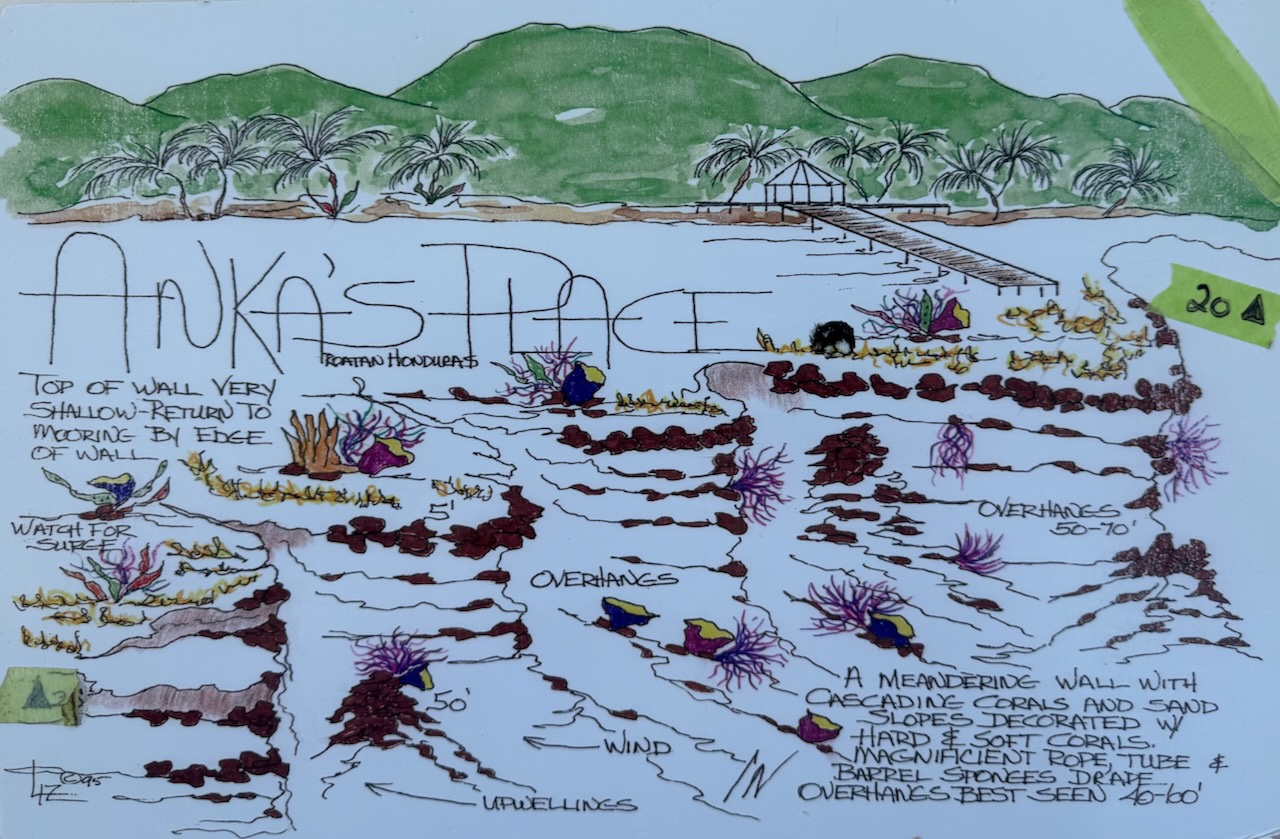 ANKA'S PLACE
ROATAN HONDURAS
TOP OF WALL VERY
SHALLOW-RETURN TO
MOORING BY EDGE
OF WALL
WATCH FOR
SURGE
20
5'
OVERHANGS
50-70'
OVERHANGS
50'
WIND
UPWELLINGS
N
A MEANDERING WALL WITH
CASCADING CORALS AND SAND
SLOPES DECORATED W/
HARD & SOFT CORALS.
MAGNIFICIENT ROPE, TUBE &
BARREL SPONGES DRAPE
OVERHANGS BEST SEEN 40-60'
LIZ ©95